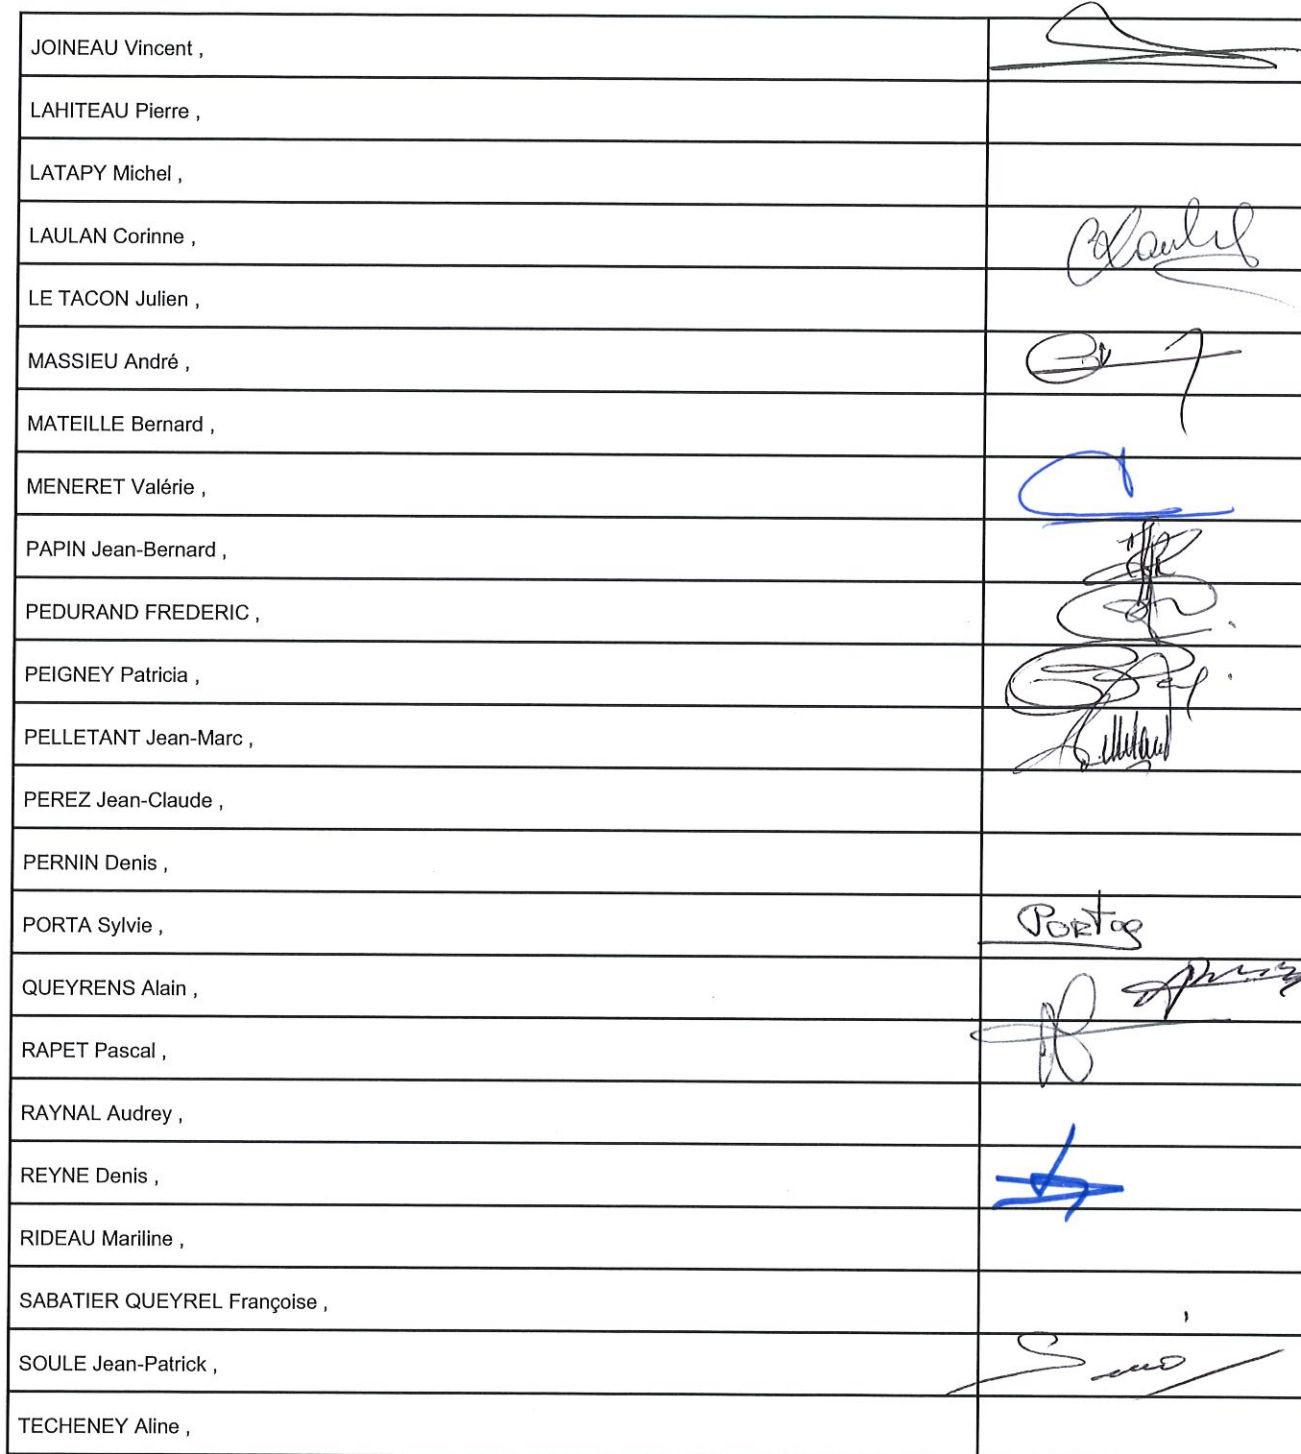 JOINEAU Vincent ,
LAHITEAU Pierre ,
LATAPY Michel ,
LAULAN Corinne ,
LE TACON Julien ,
MASSIEU André ,
MATEILLE Bernard ,
MENERET Valérie ,
PAPIN Jean-Bernard ,
PEDURAND FREDERIC ,
PEIGNEY Patricia ,
PELLETANT Jean-Marc ,
PEREZ Jean-Claude ,
PERNIN Denis ,
PORTA Sylvie ,
QUEYRENS Alain ,
RAPET Pascal ,
RAYNAL Audrey ,
REYNE Denis ,
RIDEAU Mariline ,
SABATIER QUEYREL Françoise ,
SOULE Jean-Patrick ,
TECHENEY Aline ,